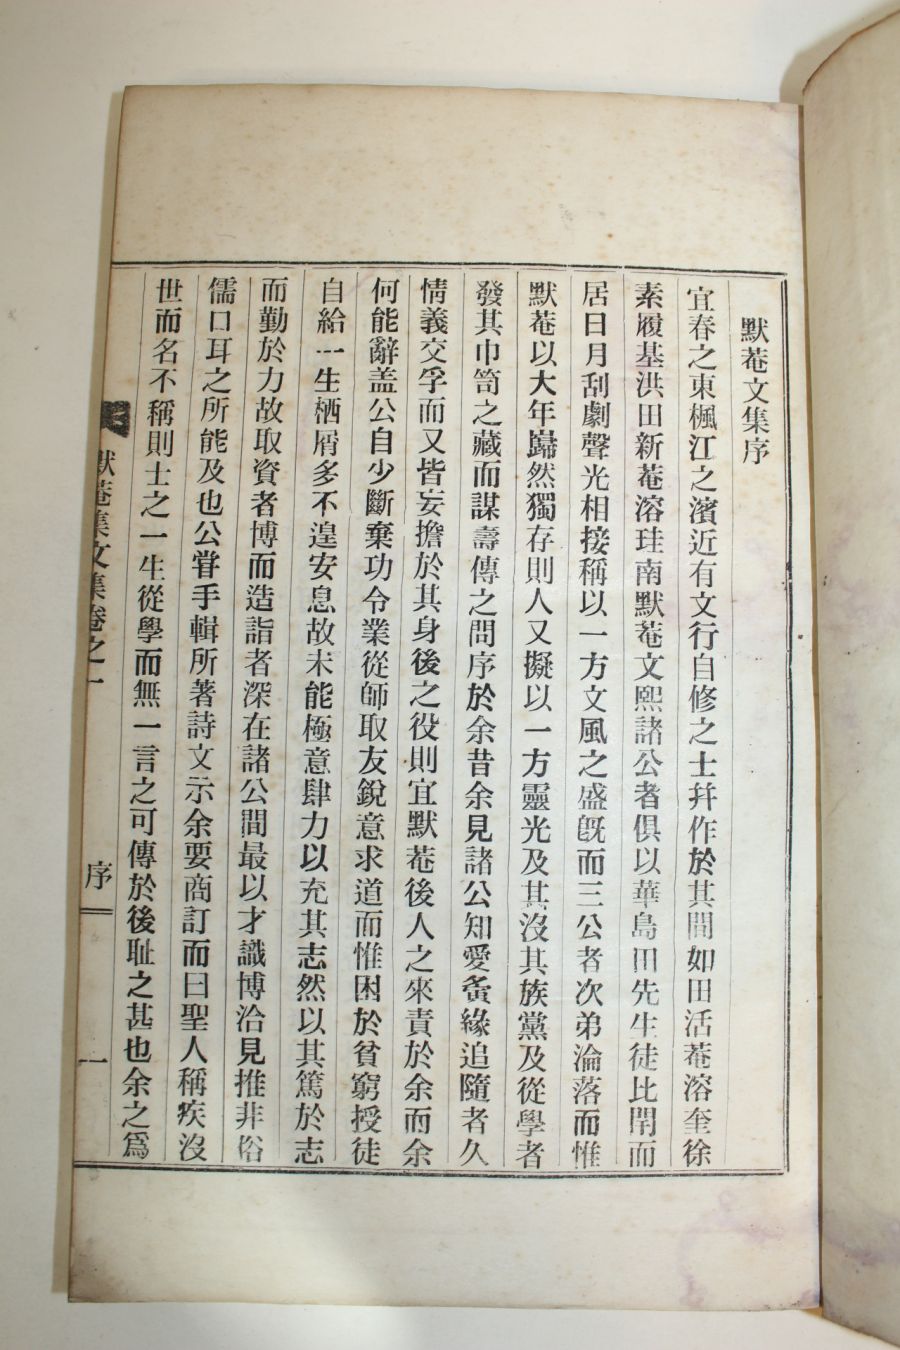 默菴文集序
宜春之東楓江之濱近有文行自修之士幷作於其間如田活菴溶奎徐
素履基洪田新菴溶珪南默菴文熙諸公者俱以華島田先生徒比閈而
居日月刮劘聲光相接稱以一方文風之盛旣而三公者次弟淪落而惟
默菴以大年巋然獨存則人又擬以一方靈光及其沒其族黨及從學者
發其巾笥之藏而謀壽傳之問序於余昔余見諸公知愛夤緣追隨者久
情義交孚而又皆妄擔於其身後之役則宜默菴後人之來責於余而余
何能辭盖公自少斷棄功令業從師取友銳意求道而惟困於貧窮授徒
自給一生栖屑多不遑安息故未能極意肆力以充其志然以其篤於志
而勤於力故取資者博而造詣者深在諸公間最以才識博洽見推非俗
儒口耳之所能及也公甞手輯所著詩文示余要商訂而曰聖人稱疾沒
世而名不稱則士之一生從學而無一言之可傳於後耻之甚也余之爲
默菴集文集卷之一 序 一